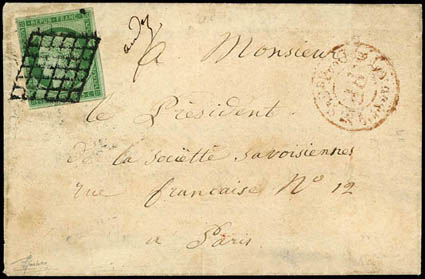 REPUB. FRANC.
A Monsieur
le Président
de la sociètté savoisiennes
rue francaise No 12
a Paris